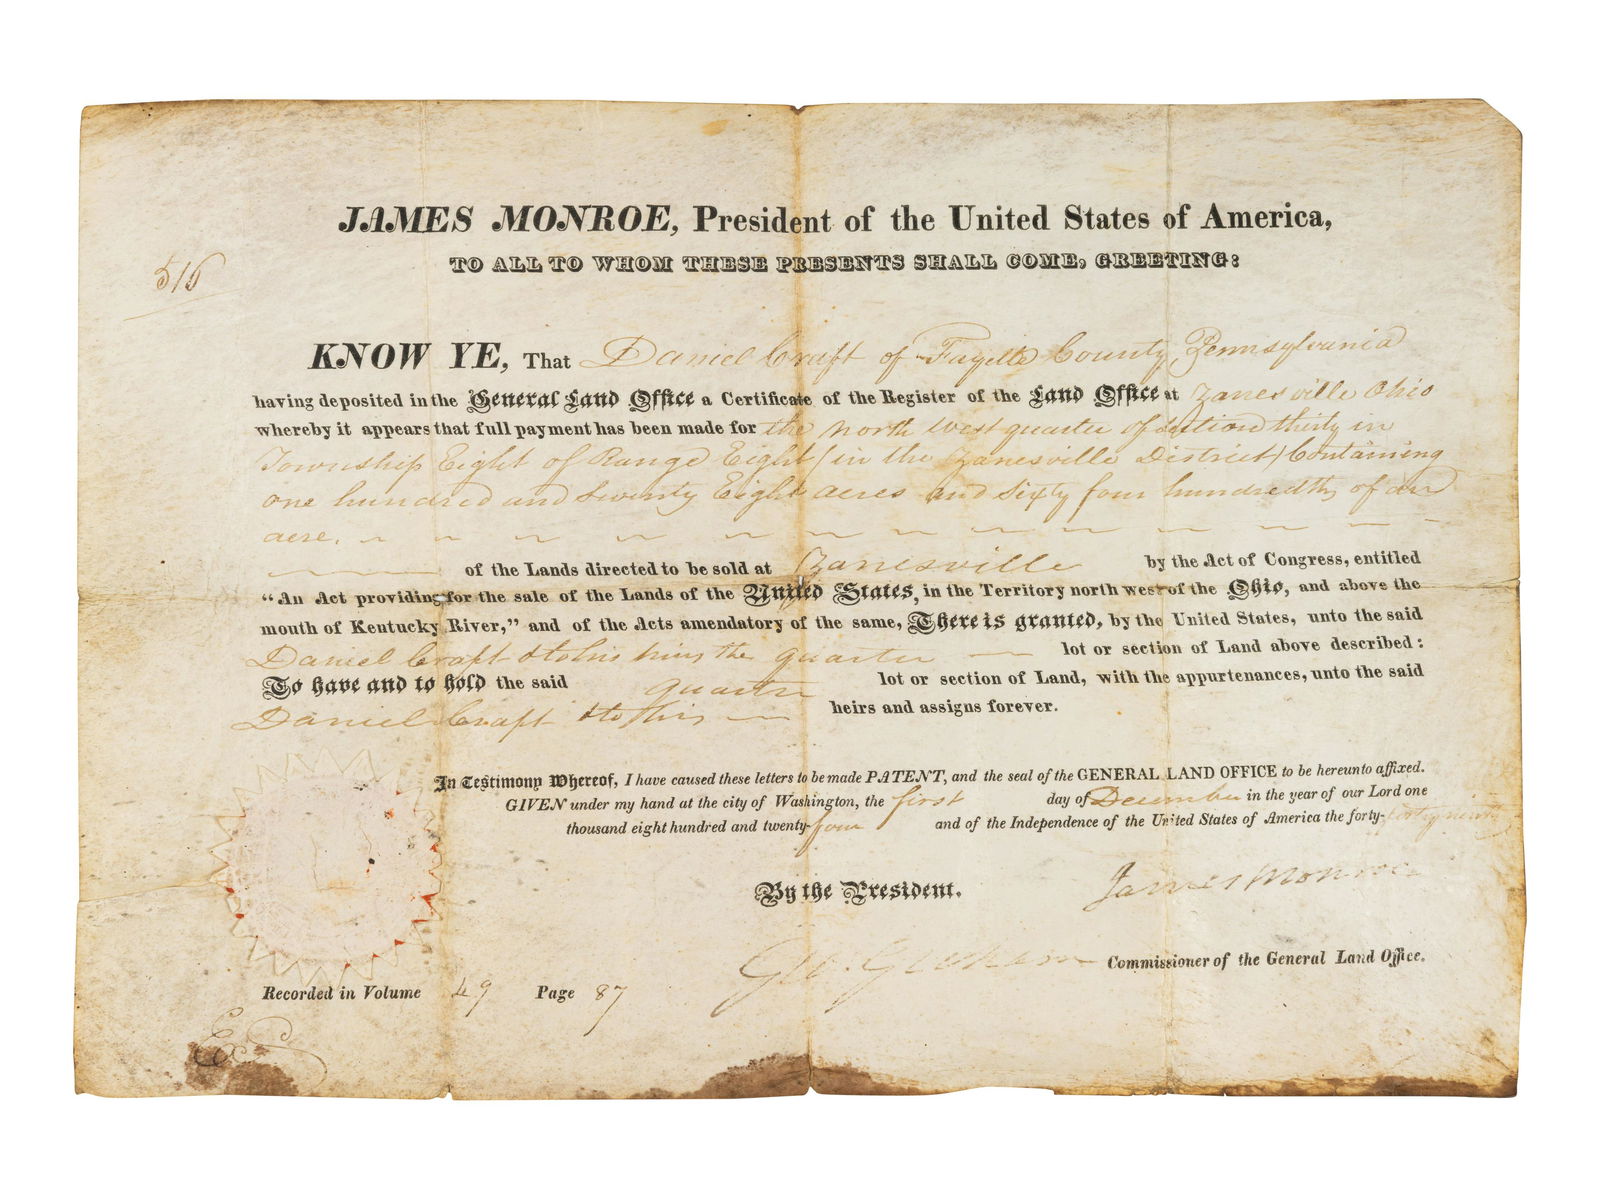 JAMES MONROE, President of the United States of America,
TO ALL TO WHOM THESE PRESENTS SHALL COME, GREETING:
515
KNOW YE, That Daniel Craft of Fayette County, Pennsylvania
having deposited in the General Land Office a Certificate of the Register of the Land Office at Zanesville Ohio
whereby it appears that full payment has been made for the north west quarter of section thirty in
Township Eight of Range Eight (in the Zanesville District) Containing
one hundred and twenty Eight acres and sixty four hundredths of an
acre.
of the Lands directed to be sold at Zanesville by the Act of Congress, entitled
“An Act providing for the sale of the Lands of the United States, in the Territory north west of the Ohio, and above the
mouth of Kentucky River,” and of the Acts amendatory of the same, There is granted, by the United States, unto the said
Daniel Craft & to his heirs the quarter lot or section of Land above described:
To have and to hold the said quarter lot or section of Land, with the appurtenances, unto the said
Daniel Craft & to his heirs and assigns forever.
In Testimony Whereof, I have caused these letters to be made PATENT, and the seal of the GENERAL LAND OFFICE to be hereunto affixed.
GIVEN under my hand at the city of Washington, the first day of December in the year of our Lord one
thousand eight hundred and twenty-four and of the Independence of the United States of America the forty-forty ninth
By the President. James Monroe
Geo: Graham Commissioner of the General Land Office.
Recorded in Volume 49 Page 87